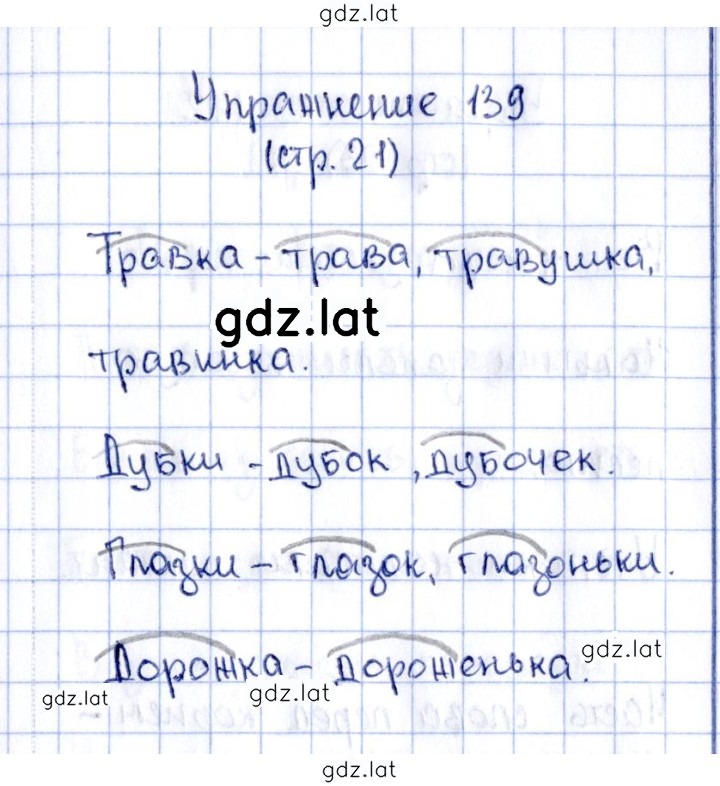 gdz.lat
Упражнение 139
(стр. 21)
Травка - трава, травушка,
gdz.lat
травинка.
Дубки - дубок, дубочек.
Глазки - глазок, глазоньки.
Дорожка - дороженька.
gdz.lat
gdz.lat
gdz.lat
gdz.lat